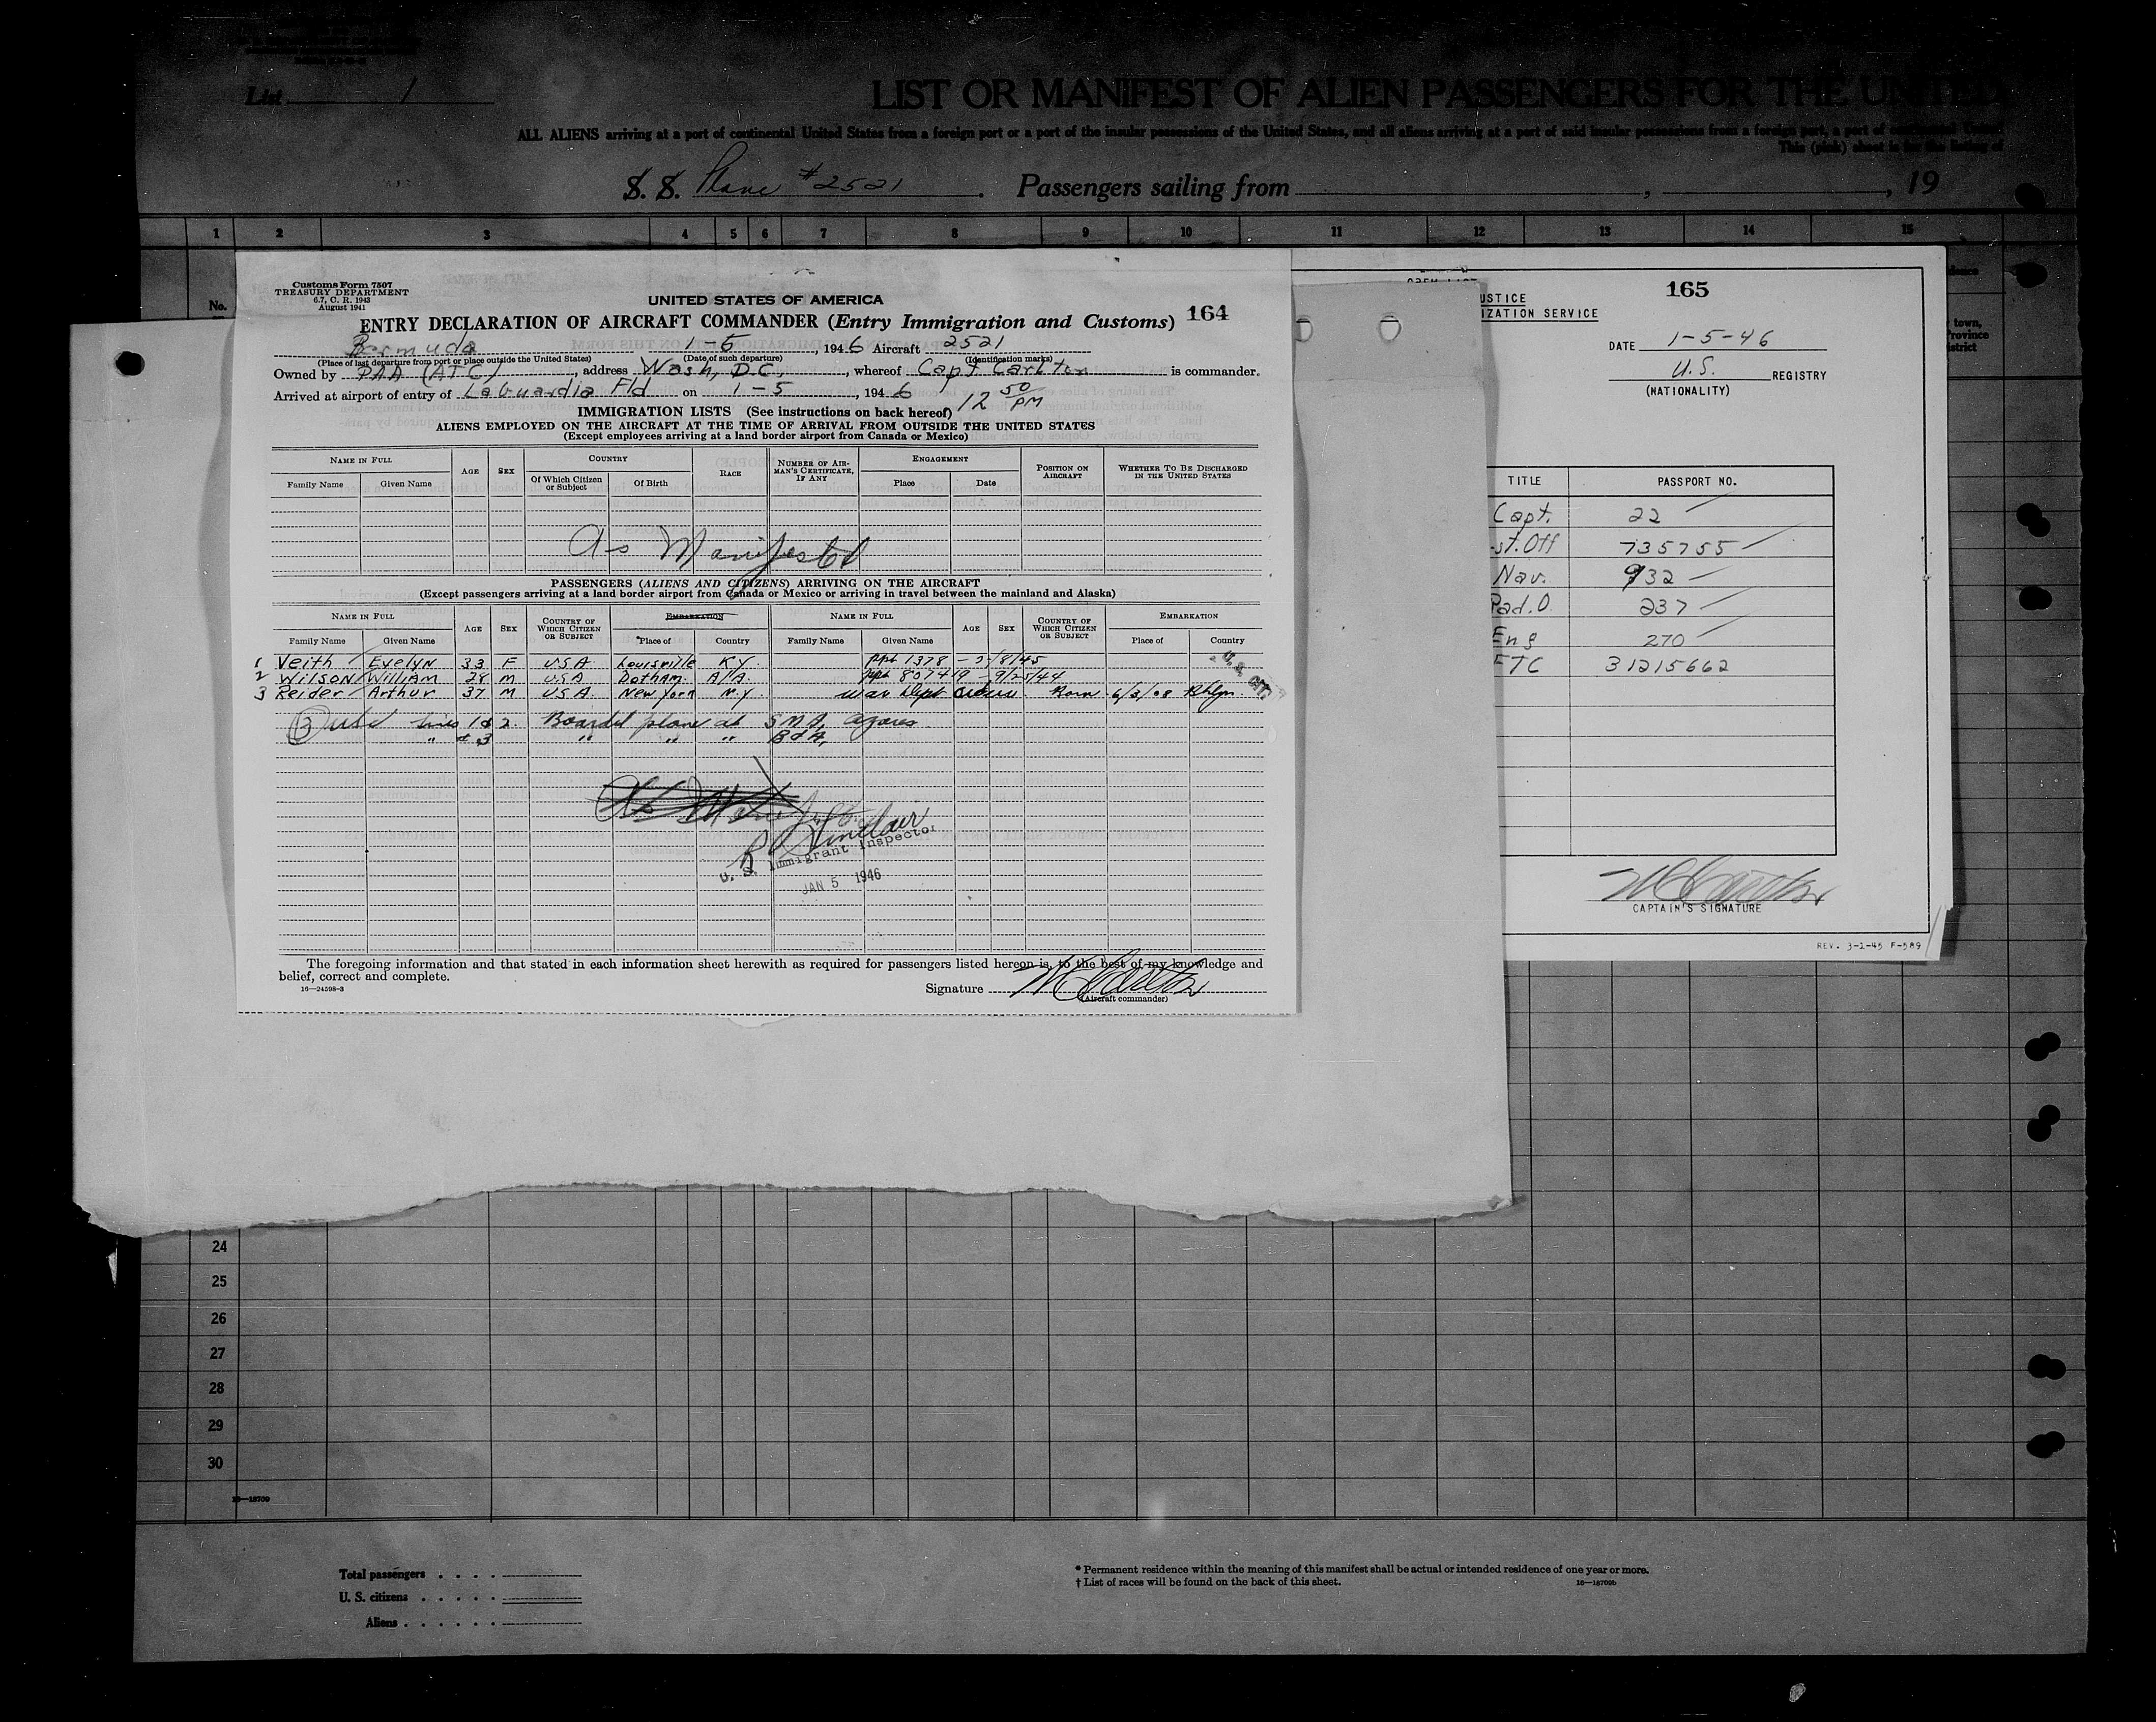 List 1
LIST OR MANIFEST OF ALIEN PASSENGERS FOR THE UNITED
ALL ALIENS arriving at a port of continental United States from a foreign port or a port of the insular possessions of the United States, and all aliens arriving at a port of said insular possessions from a foreign port, a port of continental United
This (pink) sheet is for the listing of
S. S. Plane #2521. Passengers sailing from , , 19
1 2 3 4 5 6 7 8 9 10 11 12 13 14 15
No.
town,
Province
District
Customs Form 7507
TREASURY DEPARTMENT
6.7, C. R. 1943
August 1941
UNITED STATES OF AMERICA
164
ENTRY DECLARATION OF AIRCRAFT COMMANDER (Entry Immigration and Customs)
Bermuda 1-5, 1946 Aircraft 2521
(Place of last departure from port or place outside the United States) (Date of such departure) (Identification marks)
Owned by PAA (ATC), address Wash, D.C., whereof Capt Carlton is commander.
Arrived at airport of entry of LaGuardia Fld on 1-5, 1946 12 50 PM
IMMIGRATION LISTS (See instructions on back hereof)
ALIENS EMPLOYED ON THE AIRCRAFT AT THE TIME OF ARRIVAL FROM OUTSIDE THE UNITED STATES
(Except employees arriving at a land border airport from Canada or Mexico)
NAME IN FULL AGE SEX COUNTRY RACE NUMBER OF AIRMAN'S CERTIFICATE, IF ANY ENGAGEMENT POSITION ON AIRCRAFT WHETHER TO BE DISCHARGED IN THE UNITED STATES
Family Name Given Name Of Which Citizen or Subject Of Birth Place Date
As Manifested
PASSENGERS (ALIENS AND CITIZENS) ARRIVING ON THE AIRCRAFT
(Except passengers arriving at a land border airport from Canada or Mexico or arriving in travel between the mainland and Alaska)
NAME IN FULL AGE SEX COUNTRY OF WHICH CITIZEN OR SUBJECT EMBARKATION NAME IN FULL AGE SEX COUNTRY OF WHICH CITIZEN OR SUBJECT EMBARKATION
Family Name Given Name Place of Country Family Name Given Name Place of Country
1 Veith Evelyn 33 F USA Louisville KY. ppt 1378
2 Wilson William 28 M USA Dothan ALA. ppt 807419 - 9/25/44
3 Reider Arthur 37 M U.S.A. New York N.Y. War Dept Orders Born 6/3/08 Bklyn
U.S. CIT.
3 lines 1 & 2 Boarded plane at SMA, Azores
" # 3 " " " BdA,
As Manifested
R Sinclair
U. S. Immigrant Inspector
JAN 5 1946
The foregoing information and that stated in each information sheet herewith as required for passengers listed hereon is, to the best of my knowledge and
belief, correct and complete.
16—24598-3
Signature W Carlton
(Aircraft commander)
165
USTICE
IZATION SERVICE
DATE 1-5-46
U.S. REGISTRY
(NATIONALITY)
TITLE PASSPORT NO.
Capt. 22
st. Off 735755
Nav. 932
Rad. O. 237
Eng 270
FTC 31215662
W Carlton
CAPTAIN'S SIGNATURE
REV. 3-2-45 F-589
24
25
26
27
28
29
30
16—18709
Total passengers
U. S. citizens
Aliens
* Permanent residence within the meaning of this manifest shall be actual or intended residence of one year or more.
† List of races will be found on the back of this sheet. 16—18709b